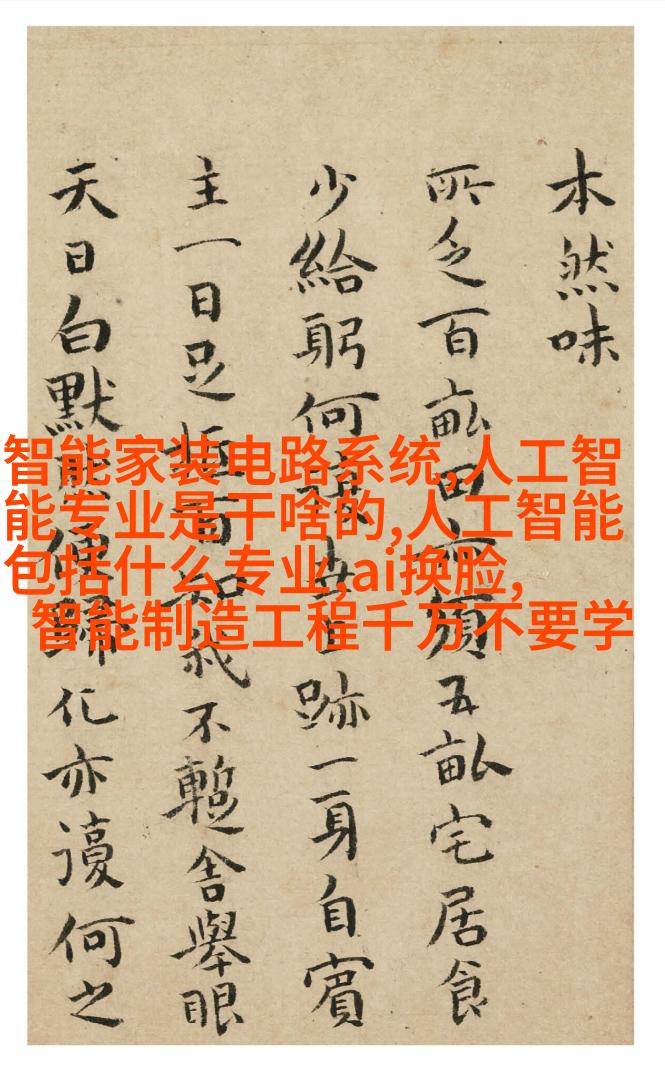 本然味
所乏百畝田亦須五畝宅居食
少給躬何跡一身自賓
主一日足知我不暫舍舉眼
天日白默歸化亦謾何之
智能家装电路系统,人工智
能专业是干啥的,人工智能
包括什么专业,ai换脸,
智能制造工程千万不要学